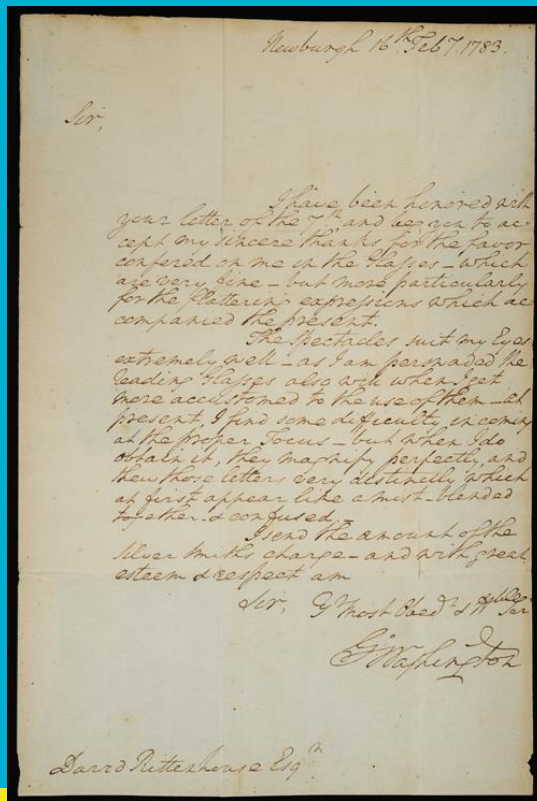 Newburgh 16th Feby 1783.
Sir,
I have been honored with
your letter of the 7th and beg you to ac-
cept my sincere thanks for the favor
confered on me in the Glasses – which
are very fine – but more particularly
for the flattering expressions which ac
companied the present.
The Spectacles suit my Eyes
extremely well – as I am perswaded the
reading Glasses also will when I get
more accustomed to the use of them – at
present, I find some difficulty in coming
at the proper Focus – but when I do
obtain it, they magnify perfectly, and
shew those letters very distinctly which
at first appear like a mist – blended
together & confused.
I send the amount of the
Silver Smiths charge – and with great
esteem & respect am
Sir, Yr Most Obedt & Hble Ser
Go Washington
David Rittenhouse Esqr